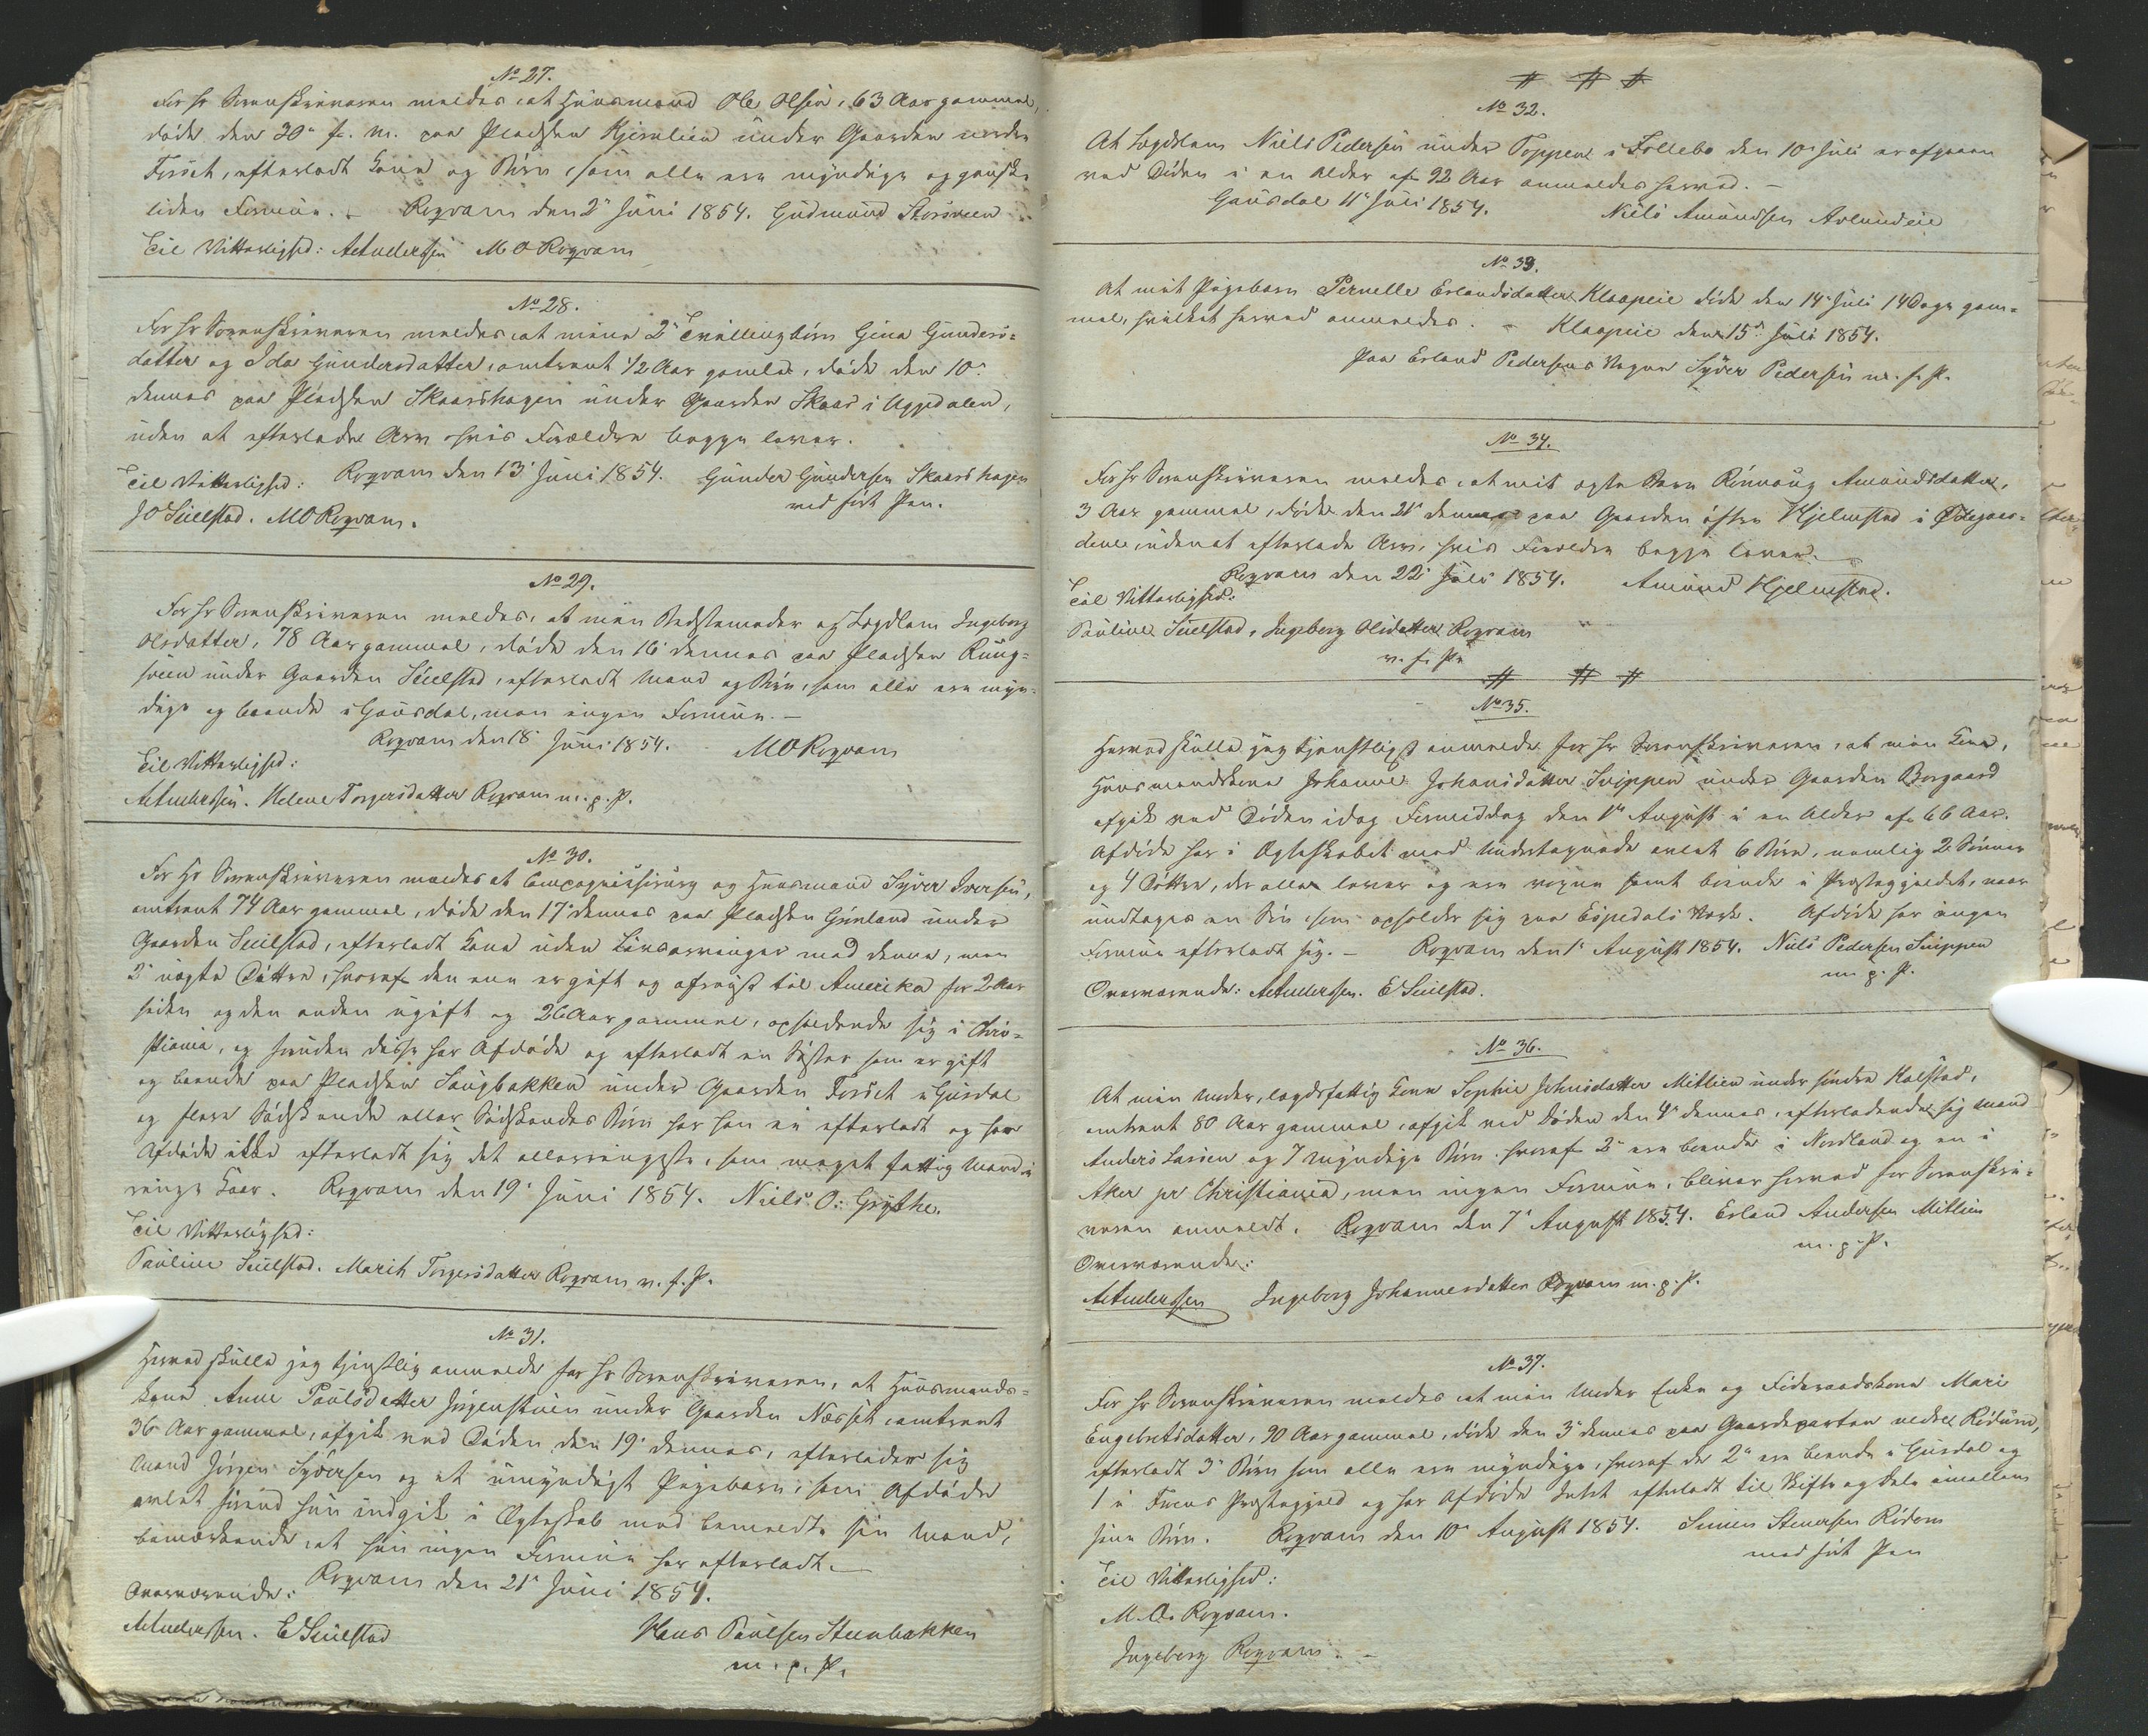 No 27.
For Hr Sorenskriveren meldes, at Huusmand Ole Olsen, 63 Aar gammel,
døde den 30te f. M. paa Pladsen Kjernlien under Gaarden nordre
Forset, efterladt Kone og Børn, som alle ere myndige og ganske
liden Formue. - Roqvam den 2den Juni 1854. Gudmund
Til Vitterlighed: A Anderssen M O Roqvam
No 28.
For Hr Sorenskriveren meldes, at mine 2de Tvillingbørn Gina Gunders=
datter og Ida Gundersdatter, omtrent 1/2 Aar gamle, døde den 10de
dennes paa Pladsen Skaarshagen under Gaarden Skaar i
uden at efterlade Arv hvis Forældre begge lever.
Til Vitterlighed: Roqvam den 13de Juni 1854. Gunder Gundersen Skaarshagen
J O Suilstad. M O Roqvam. ved ført Pen.
No 29.
For Hr Sorenskriveren meldes, at min Bedstemoder og Lægdlem Ingeborg
Olsdatter, 78 Aar gammel, døde den 16de dennes paa Pladsen Rung=
sveen under Gaarden Suilstad, efterladt Mand og Børn, som alle ere myn=
dige og boende i Gausdal, men ingen Formue. -
Roqvam den 18de Juni 1854. M O Roqvam
Til Vitterlighed:
A Anderssen. Helene Torgersdatter Roqvam m. p. P.
No 30.
For Hr Sorenskriveren meldes at Compagniechirurg og Huusmand Syver Iversen,
omtrent 74 Aar gammel, døde den 17de dennes paa Pladsen Grønland under
Gaarden Suilstad, efterladt Kone uden Livsarvinger med denne, men
2de uægte Døttre, hvoraf den ene er gift og afreist til Amerika for 2 Aar
siden og den anden ugift og 26 Aar gammel, opholdende sig i Chri=
stiania, og foruden disse har Afdøde og efterladt en Søster som er gift
og boende paa Pladsen Haugbakken under Gaarden Forset i Gusdal
og flere Sødskende eller Sødskendes Børn har han ei efterladt og har
Afdøde ikke efterladt sig det allerringeste, som meget fattig Mand i
ringe Kaar. Roqvam den 19de Juni 1854. Niels O: Grythe.
Til Vitterlighed:
Pauline Suilstad. Marith Torgersdatter Roqvam v. f. P.
No 31.
Herved skulle jeg tjenstlig anmelde for Hr Sorenskriveren, at Huusmands=
kone Anne Poulsdatter Jørgenstuen under Gaarden Nærset omtrent
36 Aar gammel, afgik ved Døden den 19de dennes, efterlader sig
Mand Jørgen Syversen og et umyndigt Pigebarn, som Afdøde
avlet førend hun indgik i Ægteskab med bemeldte sin Mand,
bemærkende, at hun ingen Formue har efterladt. -
Roqvam den 21de Juni 1854.
Overværende:
A Anderssen. E Suilstad Hans Poulsen Steenbakken
m. p. P.
No 32.
At Lægdslem Niels Pedersen under Toppen i Follebo den 10de Juli er afgaaen
ved Døden i en Alder af 92 Aar anmeldes herved. -
Gausdal 11te Juli 1854. Niels Amundsen Avlundeie
No 33.
At mit Pigebarn Pernelle Erlandsdatter Klaapeie døde den 14de Juli 14 Dage gam=
mel, hvilket herved anmeldes. - Klaapeie den 15de Juli 1854.
Paa Erland Pedersens Vegne Syver Pedersen m. f. P.
No 34.
For Hr Sorenskriveren meldes, at mit ægte Barn Rønnaug Amundsdatter,
3 Aar gammel, døde den 21de dennes paa Gaarden øftre Hjelmstad i Ødegaar=
dene, uden at efterlade Arv, hvis Forældre begge lever. -
Roqvam den 22de Juli 1854. Amund Hjelmstad.
Til Vitterlighed:
Pauline Suilstad, Ingeborg Olsdatter Roqvam
v. f. P.
No 35.
Herved skulle jeg tjenstligst anmelde for Hr Sorenskriveren, at min Kone,
Huusmandskone Johanne Johansdatter Snippen under Gaarden Borgaard
afgik ved Døden idag Formiddag den 1ste August i en Alder af 66 Aar.
Afdøde har i Ægteskabet med Undertegnede avlet 6 Børn, nemlig 2 Sønner
og 4 Døttre, der alle lever og ere voxne samt boende i Præstegjeldet, naar
undtages en Søn som opholder sig paa Espedals Værk. Afdøde har ingen
Formue efterladt sig. - Roqvam den 1ste August 1854. Niels Pedersen Snippen
m. p. P.
Overværende: A Anderssen. E Suilstad.
No 36.
At min Moder, lægdsfattig Kone Sophie Johnsdatter Mitlien under søndre Kalstad,
omtrent 80 Aar gammel, afgik ved Døden den 4de dennes, efterladende sig Mand
Anders Larsen og 7 myndige Børn, hvoraf 2de ere boende i Nordland og en i
Aker pr Christiania, men ingen Formue, bliver herved for Sorenskri=
veren anmeldt. Roqvam den 7de August 1854. Erland Andersen Mitlien
m. p. P.
Overværende:
A Anderssen Ingeborg Johannesdatter Roqvam m. p. P.
No 37.
For Hr Sorenskriveren meldes, at min Moder Enke og Føderaadskone Mari
Engebretsdatter, 90 Aar gammel, døde den 3de dennes paa Gaardeparten nedre Rødum,
efterladt 3de Børn som alle ere myndige, hvoraf de 2de ere boende i Gusdal og
1 i Præstegjeld og har Afdøde Intet efterladt til Skifte og Dele imellem
sine Børn. Roqvam den 10de August 1854. Simen Stenersen Rødum
med ført Pen
Til Vitterlighed:
M. O. Roqvam.
Ingeborg Roqvam. -